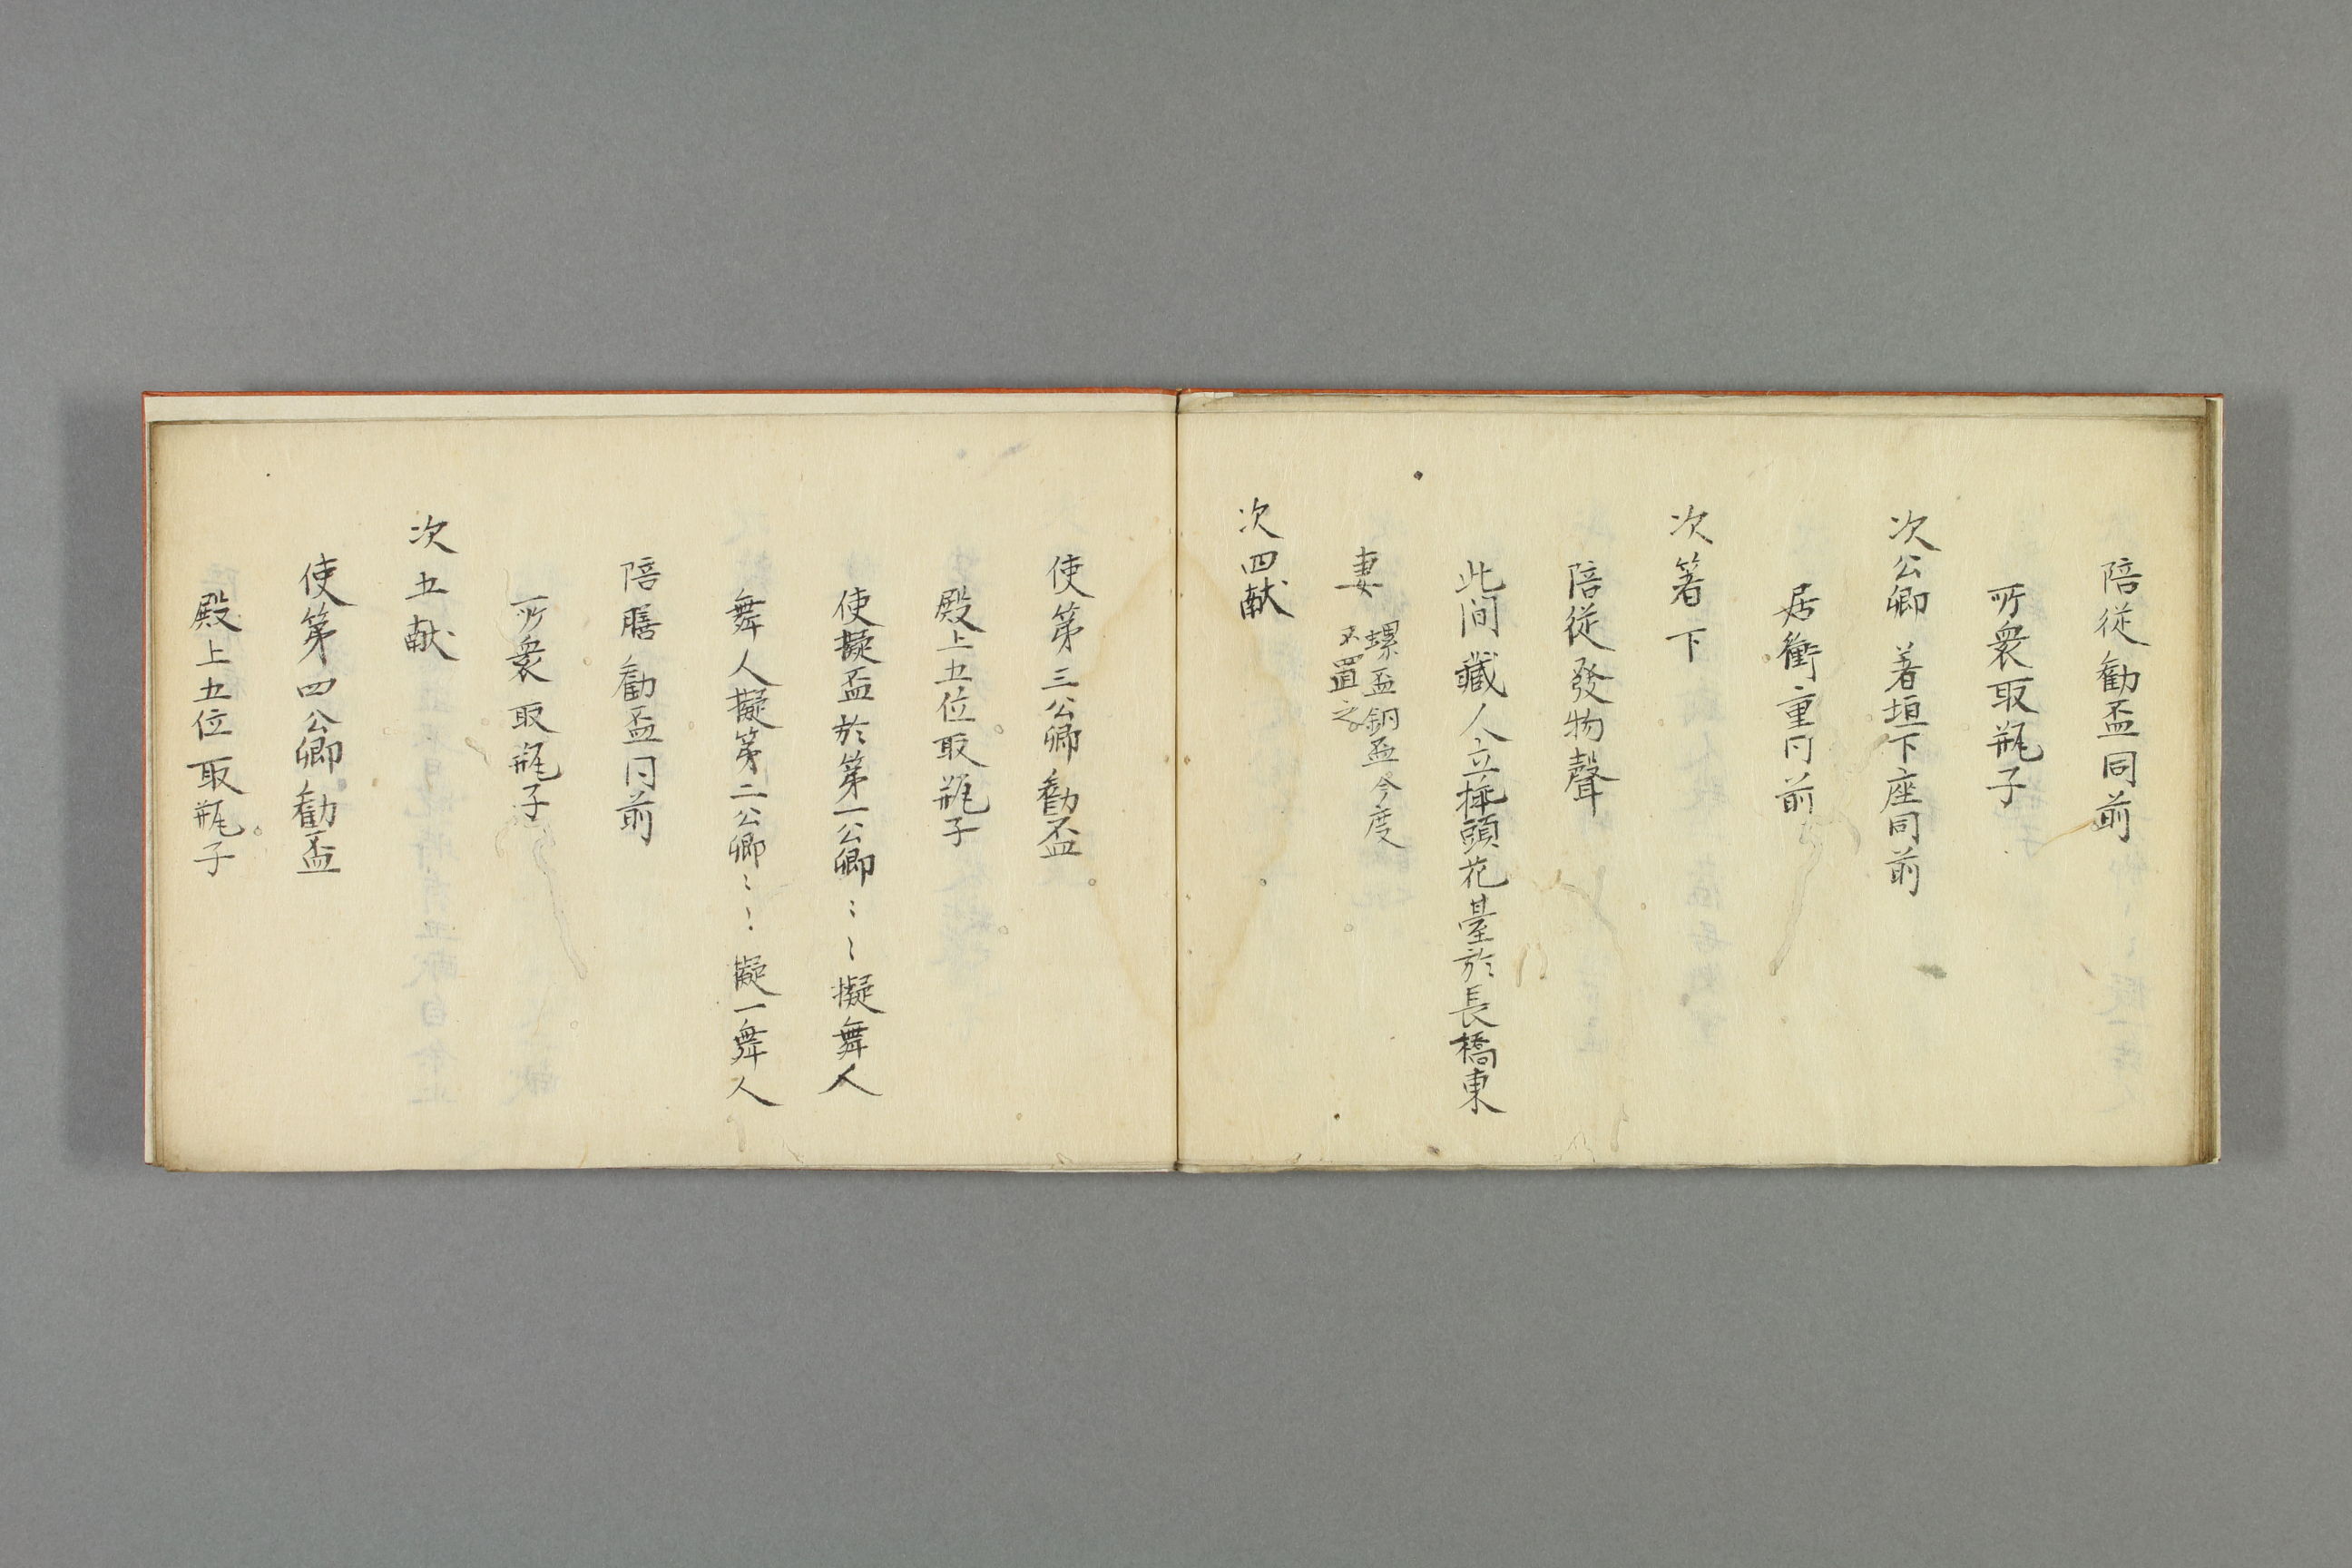 陪従勧盃同前
所衆取瓶子
次公卿著垣下座同前
居衝重同前
次箸下
陪従發物聲
此間藏人立揷頭花臺於長橋東
妻 螺盃銅盃今度
不置之
次四献
使第三公卿勧盃
殿上五位取瓶子
使擬盃於第一公卿〻〻擬舞人
舞人擬第二公卿〻〻擬一舞人
陪膳勧盃同前
所衆取瓶子
次五献
使第四公卿勧盃
殿上五位取瓶子